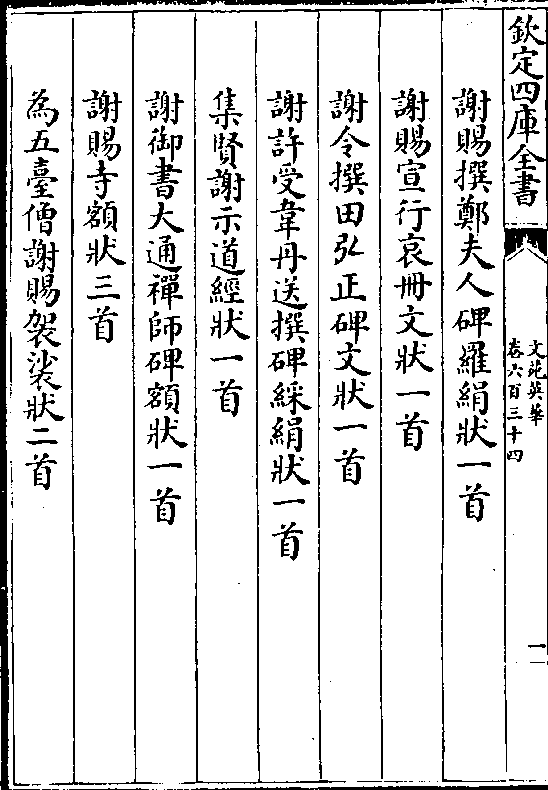 欽定四庫全書
文苑英華
卷六百三十四
一
謝賜撰鄭夫人碑羅絹狀一首
謝賜宣行哀冊文狀一首
謝令撰田弘正碑文狀一首
謝許受韋丹送撰碑綵絹狀一首
集賢謝示道經狀一首
謝御書大通禪師碑額狀一首
謝賜寺額狀三首
為五臺僧謝賜袈裟狀二首